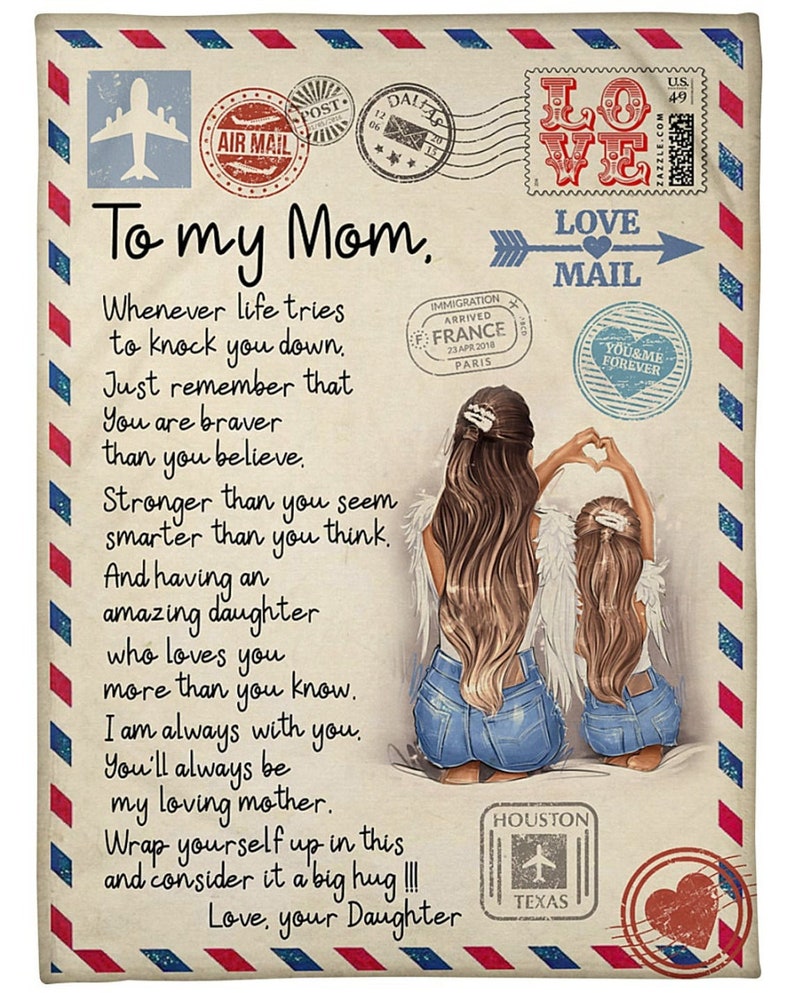 AIR MAIL
POST
DALLAS
12
06
20
15
LOVE
U.S.
49
ZAZZLE.COM
To my Mom,
LOVE
MAIL
IMMIGRATION
ARRIVED
F FRANCE
23 APR 2018
PARIS
YOU&ME
FOREVER
Whenever life tries
to knock you down.
Just remember that
You are braver
than you believe.
Stronger than you seem
smarter than you think.
And having an
amazing daughter
who loves you
more than you know.
I am always with you.
You'll always be
my loving mother.
Wrap yourself up in this
and consider it a big hug !!!
Love, your Daughter
HOUSTON
TEXAS